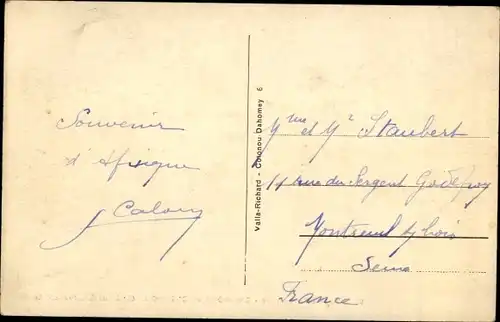 Souvenir
d'Afrique
Calory
Valla-Richard - Cotonou Dahomey 6
Mme et Mr Staubert
11 rue du Sergent Godefroy
Montreuil s/ bois
Seine
France